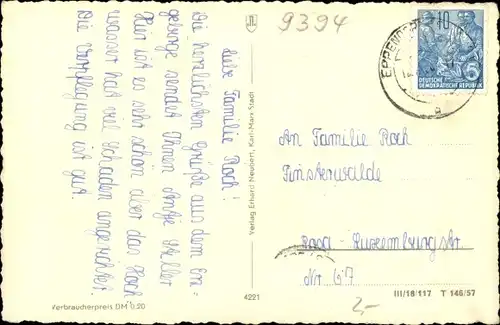 9394
Liebe Familie Koch!
Die herzlichsten Grüße aus dem Erz-
gebirge sendet Ihnen Antje
Hier ist es sehr schön aber das Hoch-
wasser hat viel Schaden angerichtet.
Die Verpflegung ist gut.
Verbraucherpreis DM 0.20
Verlag Erhard Neubert, Karl-Marx-Stadt
4221
EPPENDORF
10
DEUTSCHE
DEMOKRATISCHE REPUBLIK
a
An Familie Koch
Finsterwalde
Rosa-Luxemburgstr.
Nr. 67
2,-
III/18/117 T 146/57